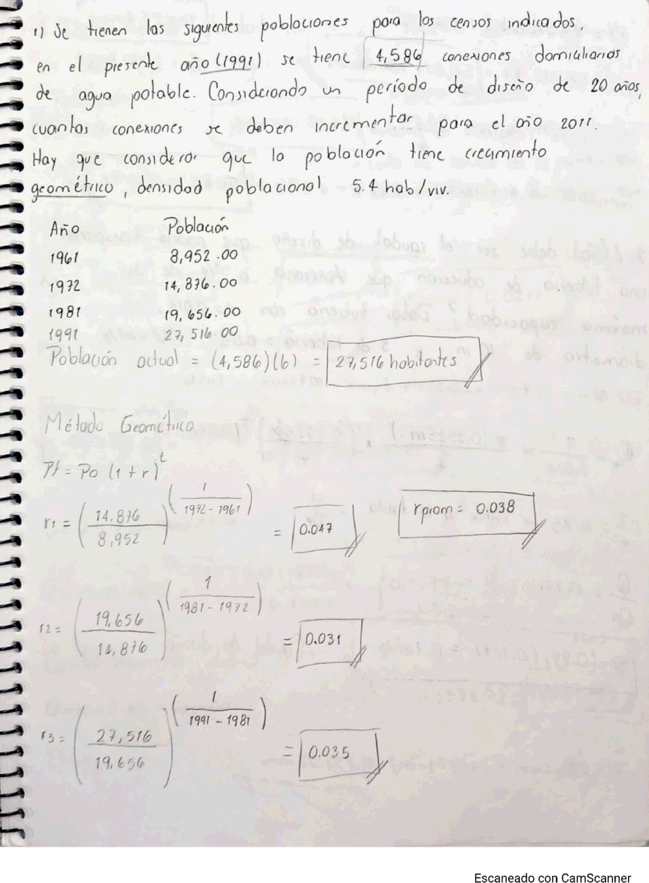 1) Se tienen las siguientes poblaciones para los censos indicados,
en el presente año (1991) se tiene 4,586 conexiones domiciliarias
de agua potable. Considerando un período de diseño de 20 años,
cuantas conexiones se deben incrementar para el año 2011.
Hay que considerar que la población tiene crecimiento
geométrico, densidad poblacional 5.4 hab/viv.
Año Población
1961 8,952.00
1972 14,876.00
1981 19,656.00
1991 27,516.00
Población actual = (4,586)(6) = 27,516 habitantes
Método Geométrico
Pf = Po (1 + r)^t
r1 = (14,876 / 8,952)^(1 / 1972 - 1961) = 0.047 rprom = 0.038
r2 = (19,656 / 14,876)^(1 / 1981 - 1972) = 0.031
r3 = (27,516 / 19,656)^(1 / 1991 - 1981) = 0.035
Escaneado con CamScanner